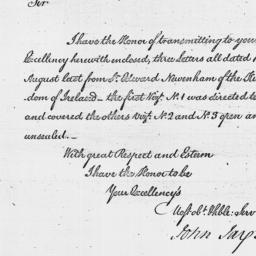 Sir
I have the Honor of transmitting to your
Excellency herewith enclosed, three Letters all dated
August last from Sr. Edward Newenham of the
dom of Ireland – the first Vizt. No. 1 was directed to
and covered the others Vizt. No. 2 and No. 3 open an
unsealed. –
With great Respect and Esteem
I have the Honor to be
Your Excellency's
Most obt. & Hble. Serv
John Jay